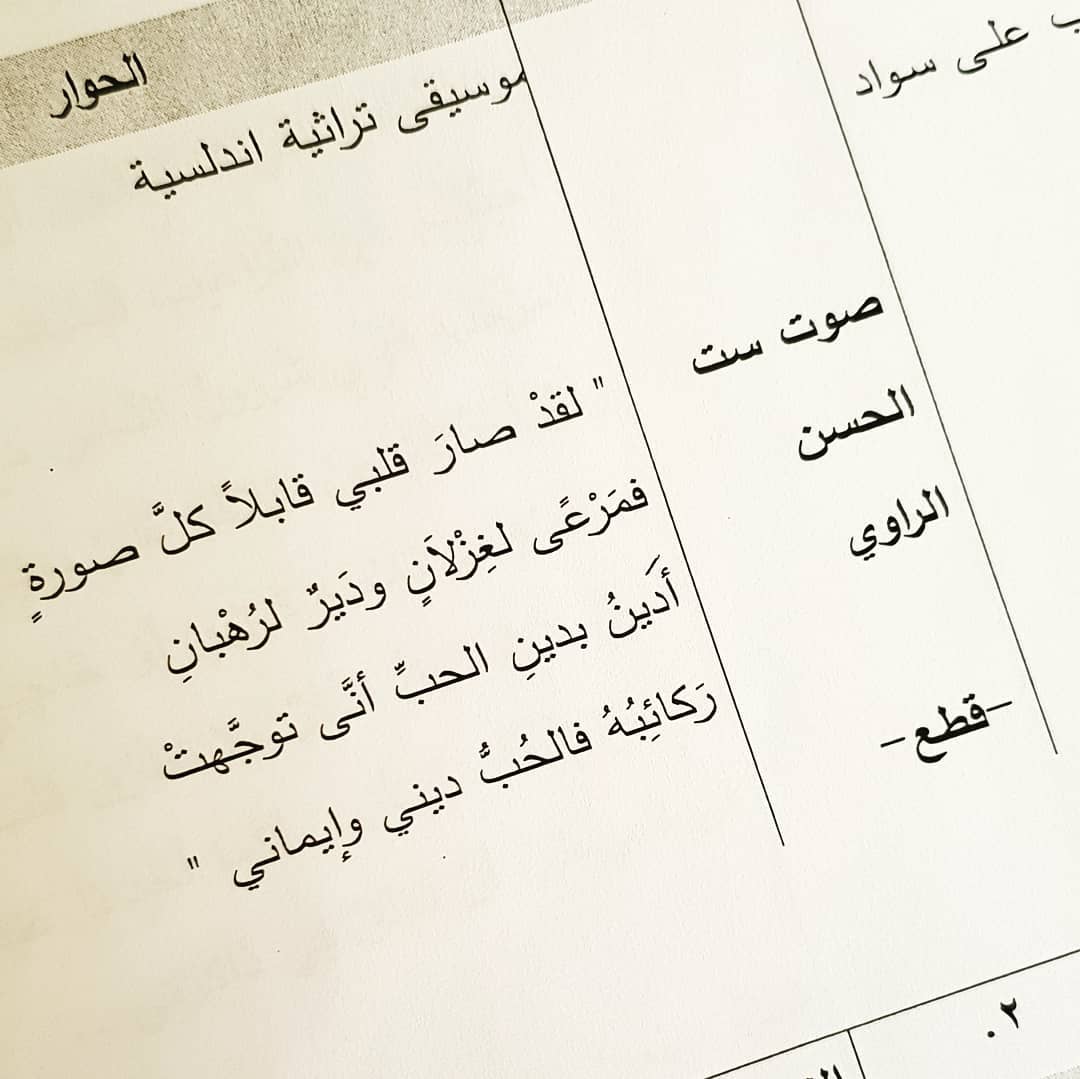 على سواد
الحوار
موسيقى تراثية اندلسية
صوت ست
الحسن
الراوي
-قطع-
" لقدْ صارَ قلبي قابلاً كلَّ صورةٍ
فمَرْعًى لغِزْلاَنٍ ودَيرٌ لرُهْبانِ
أَدينُ بدينِ الحبِّ أنَّى توجَّهتْ
رَكائِبُهُ فالحُبُّ ديني وإيماني "
٢.